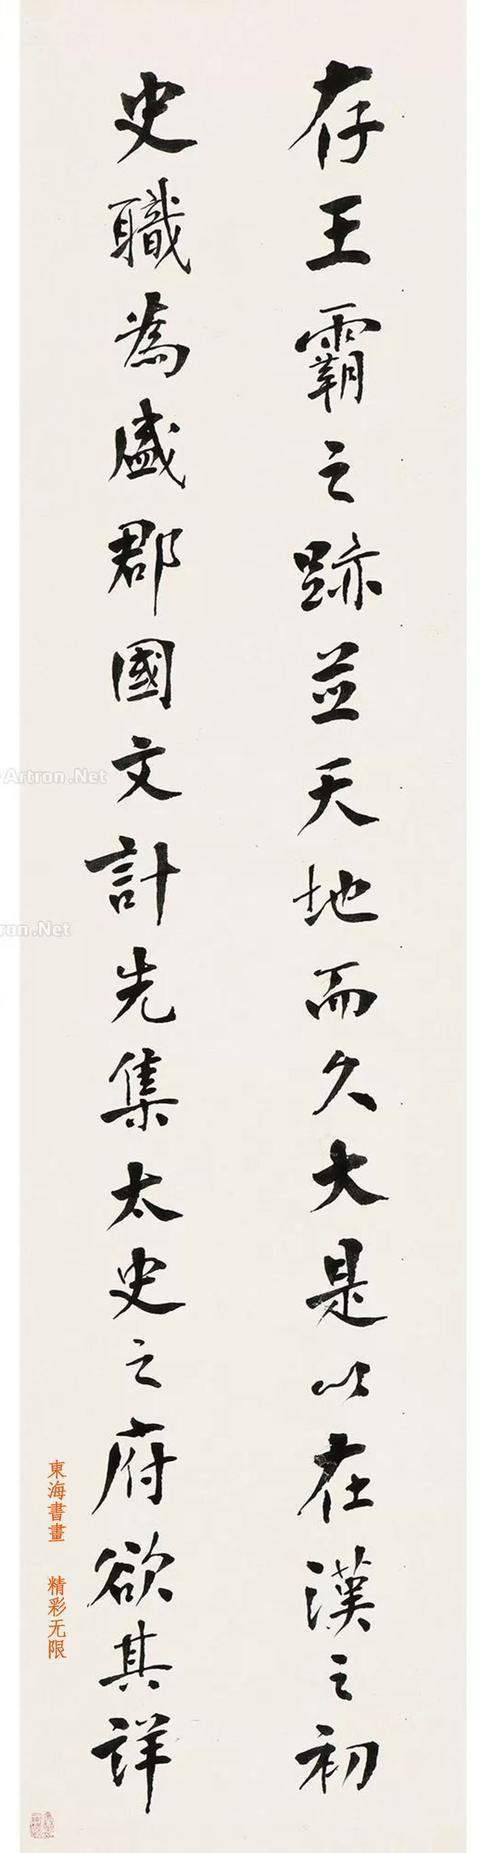 存王霸之跡並天地而久大是以在漢之初
史職為盛郡國文計先集太史之府欲其詳
東海書畫 精彩无限
Artron.Net
ron.Net